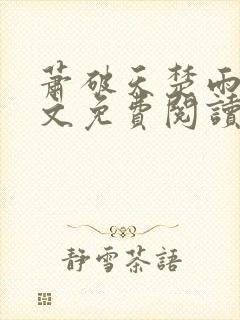 蕭破天楚雨
文免費閱讀
靜雪茶語